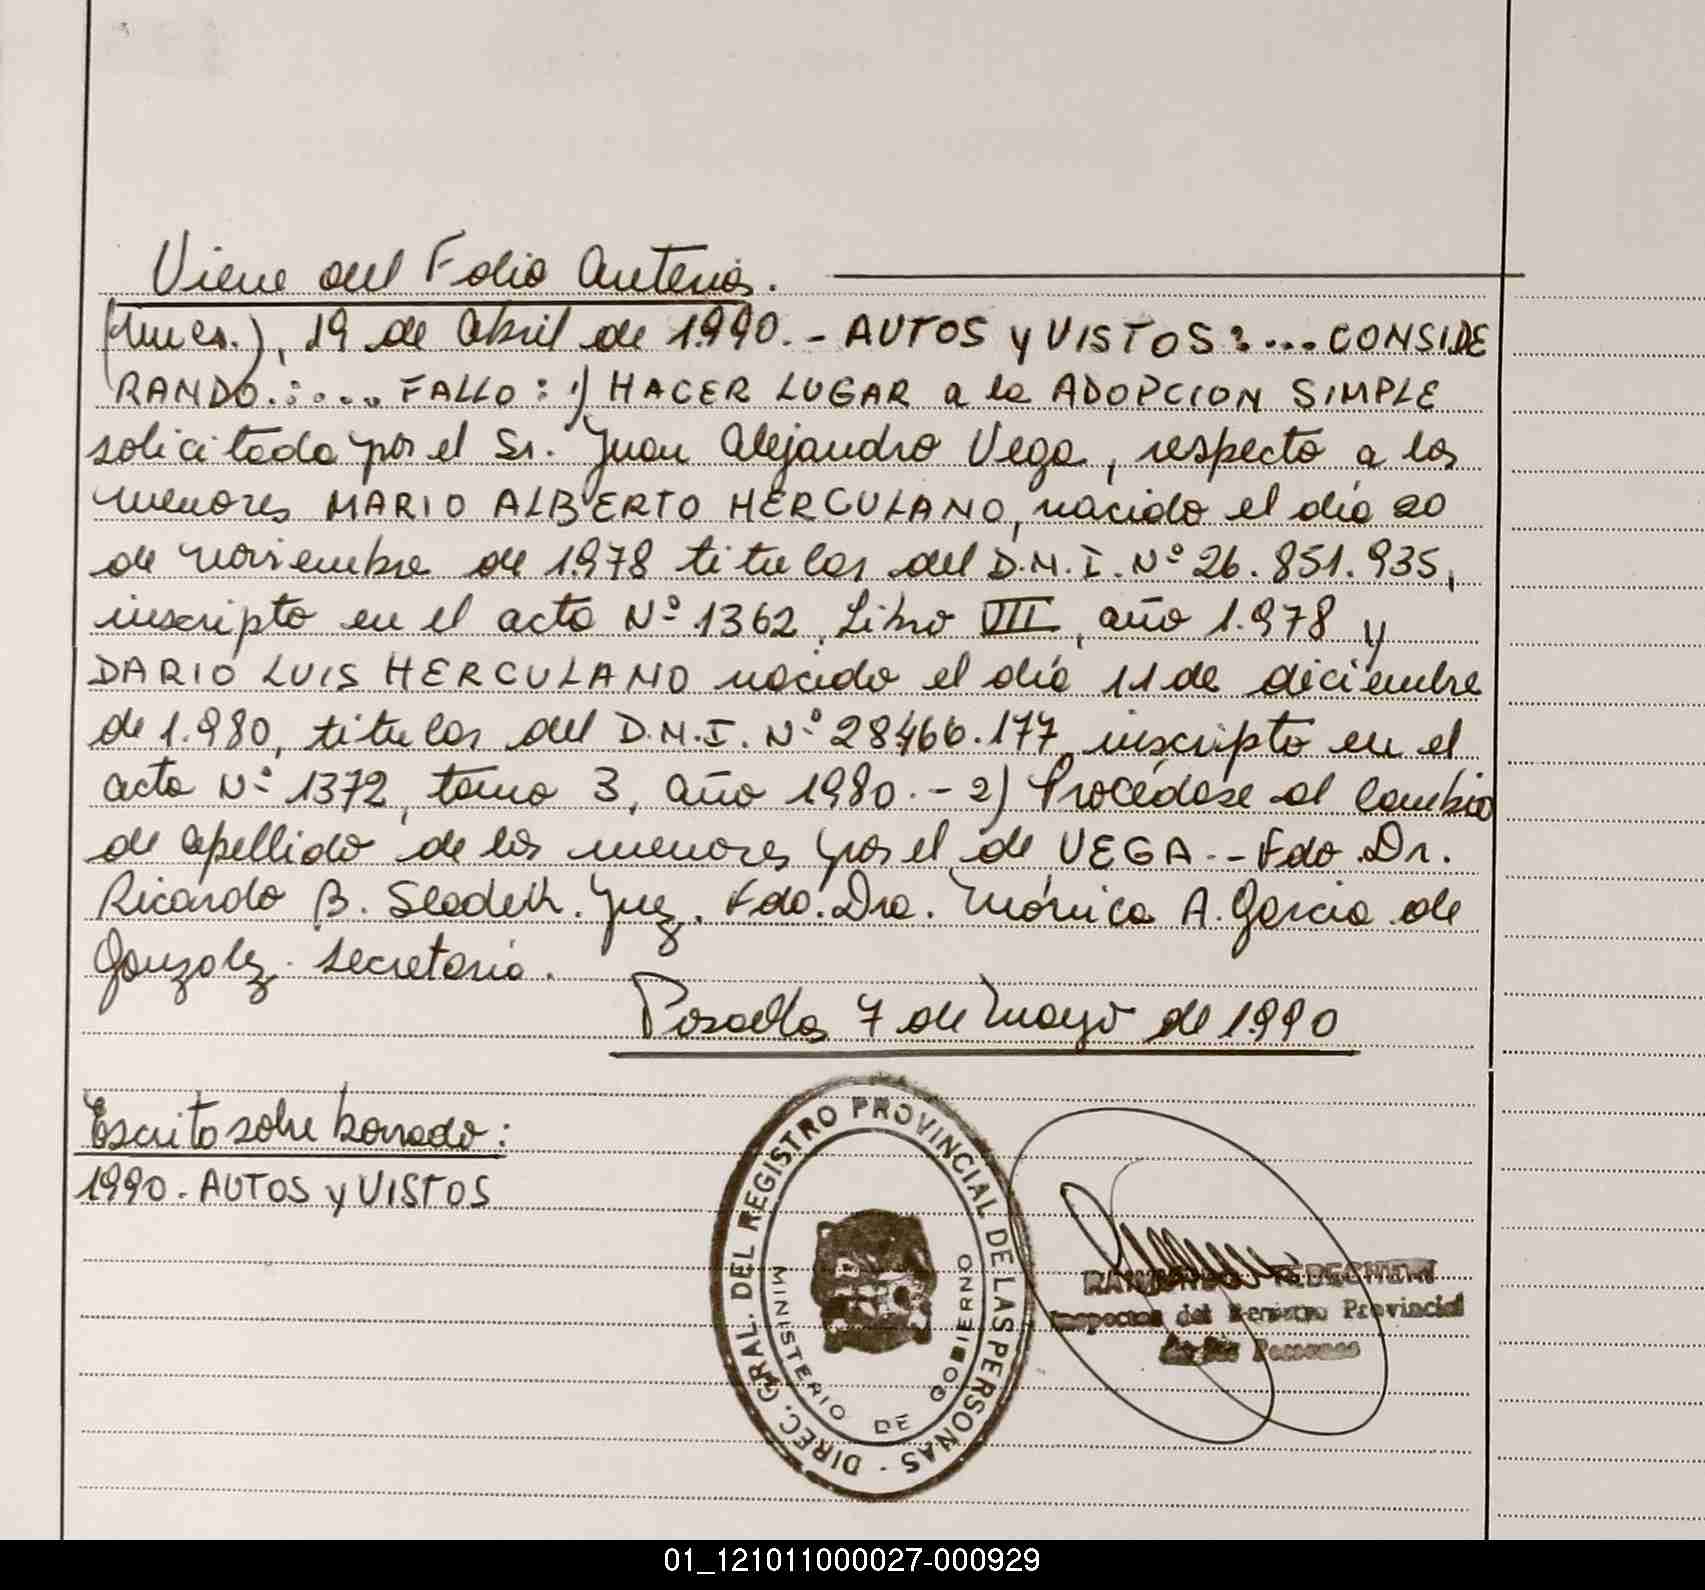 Viene del Folio Anterior.
(Mnes.), 19 de Abril de 1.990.- AUTOS y VISTOS:...CONSIDE
RANDO.:.... FALLO: 1) HACER LUGAR a la ADOPCION SIMPLE
solicitada por el Sr. Juan Alejandro Vega, respecto a los
menores MARIO ALBERTO HERCULANO, nacido el día 20
de noviembre de 1.978 titular del D.N.I. Nº 26.851.935,
inscripto en el acta Nº 1362, Libro VIII, año 1.978 y
DARIO LUIS HERCULANO nacido el día 11 de diciembre
de 1.980, titular del D.N.I. Nº 28.466.177, inscripto en el
acta Nº 1372, tomo 3, año 1980.- 2) Procédase al cambio
de apellido de los menores por el de VEGA.- Fdo. Dr.
Ricardo B. Juez. Fdo. Dra. Mónica A. Garcia de
Gonzalez. Secretaria.
Posadas 7 de Mayo de 1.990
Escrito sobre borrado:
1990. AUTOS y VISTOS
DIREC. GRAL. DEL REGISTRO PROVINCIAL DE LAS PERSONAS -
MINISTERIO DE GOBIERNO
Inspector del Registro Provincial
de las Personas
01_121011000027-000929